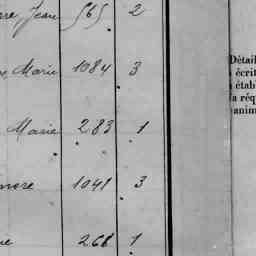 Jean 565 2
Marie 1084 3
Marie 283 1
1041 3
266 1
Détail
écrit
étab
la réq
anim